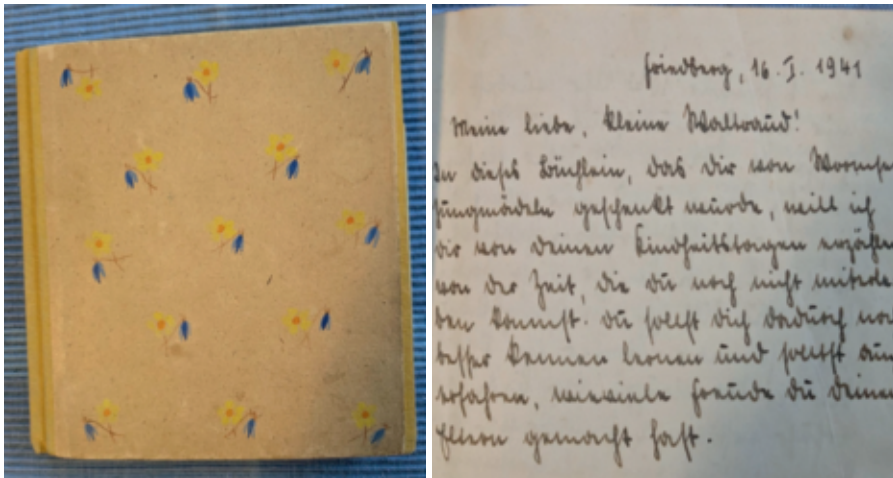 Friedberg, 16. I. 1941
Meine liebe, kleine Waltraud!
In dieses Büchlein, das dir von Wormser
Jungmädeln geschenkt wurde, will ich
dir von deinen Kindheitstagen erzählen
von der Zeit, die du noch nicht miterle-
ben konntest. Du sollst dich dadurch
besser kennen lernen und sollst
erfahren, wieviele Freude du deinen
Eltern gemacht hast.